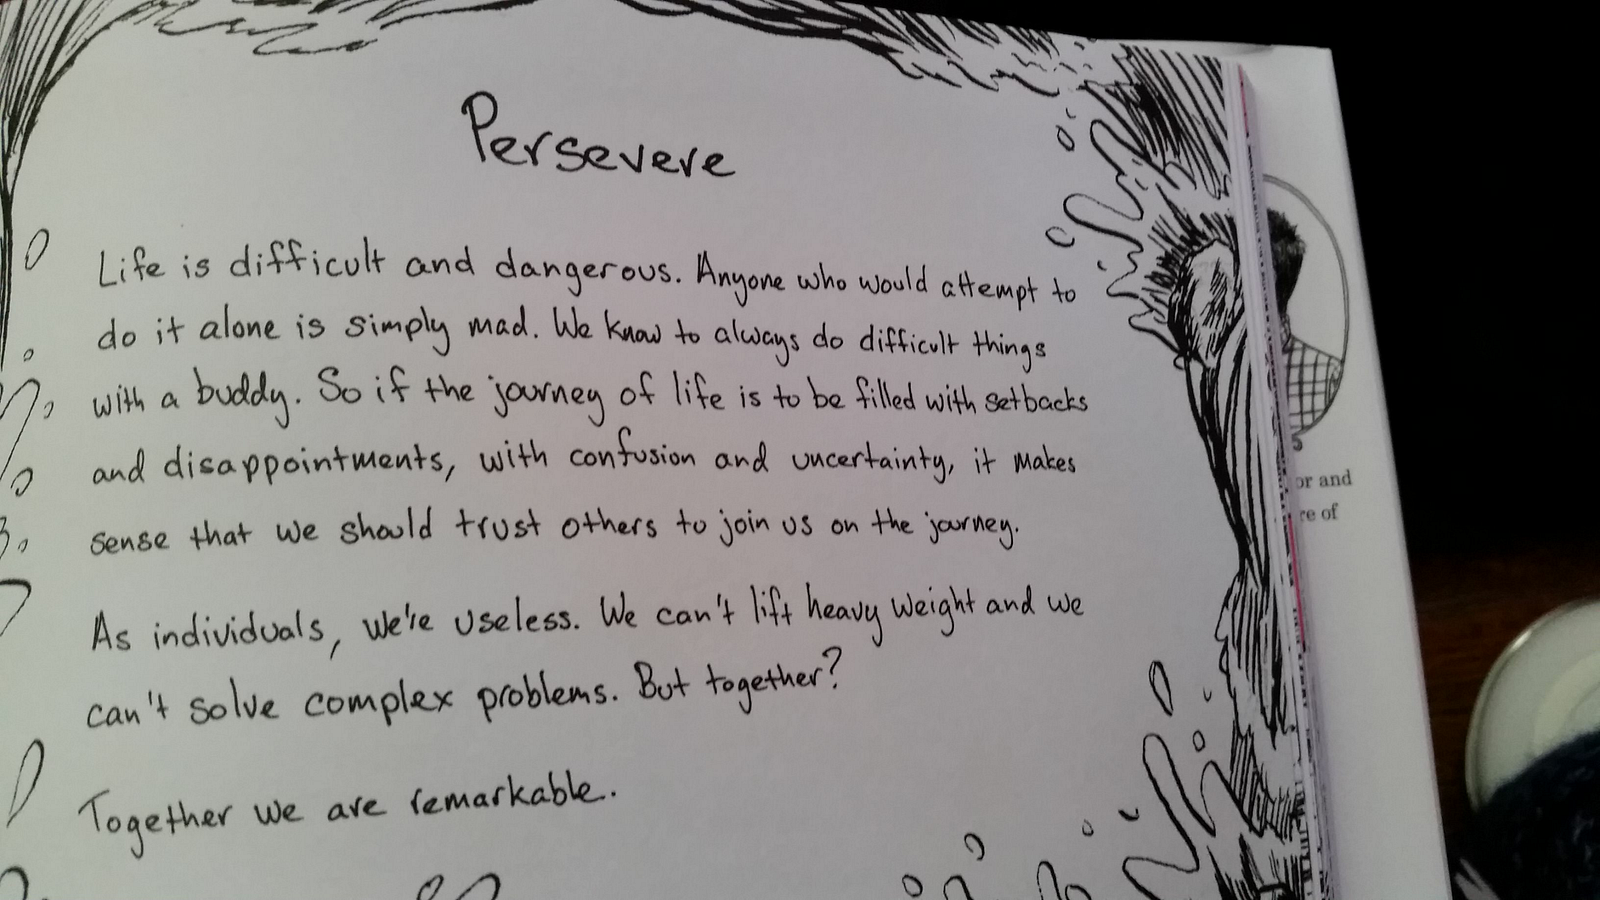 Persevere
Life is difficult and dangerous. Anyone who would attempt to
do it alone is simply mad. We know to always do difficult things
with a buddy. So if the journey of life is to be filled with setbacks
and disappointments, with confusion and uncertainty, it makes
sense that we should trust others to join us on the journey.
As individuals, we're useless. We can't lift heavy weight and we
can't solve complex problems. But together?
Together we are remarkable.
or and
re of